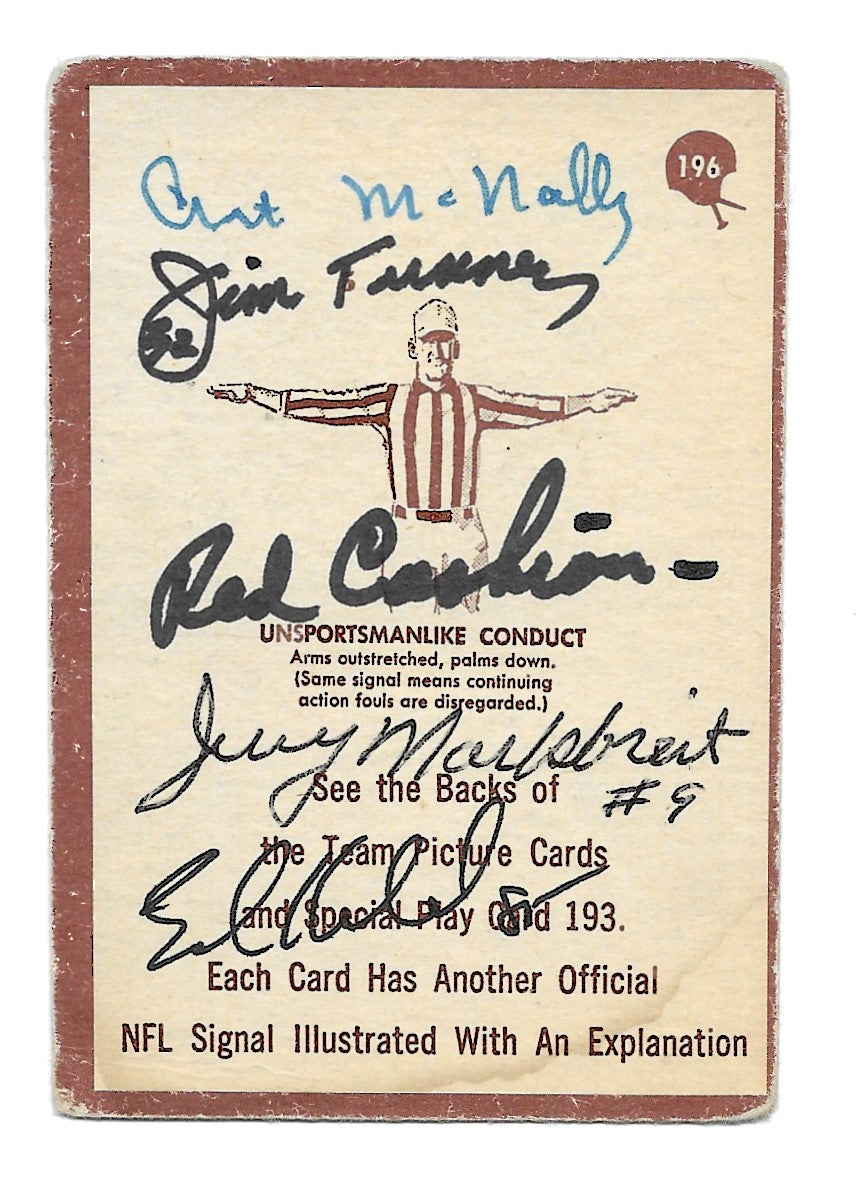 196
Art McNally
Jim Tunney
32
Red Cashion
UNSPORTSMANLIKE CONDUCT
Arms outstretched, palms down.
(Same signal means continuing
action fouls are disregarded.)
Jerry Markbreit
#9
See the Backs of
the Team Picture Cards
Ed 85
and Special Play Card 193.
Each Card Has Another Official
NFL Signal Illustrated With An Explanation